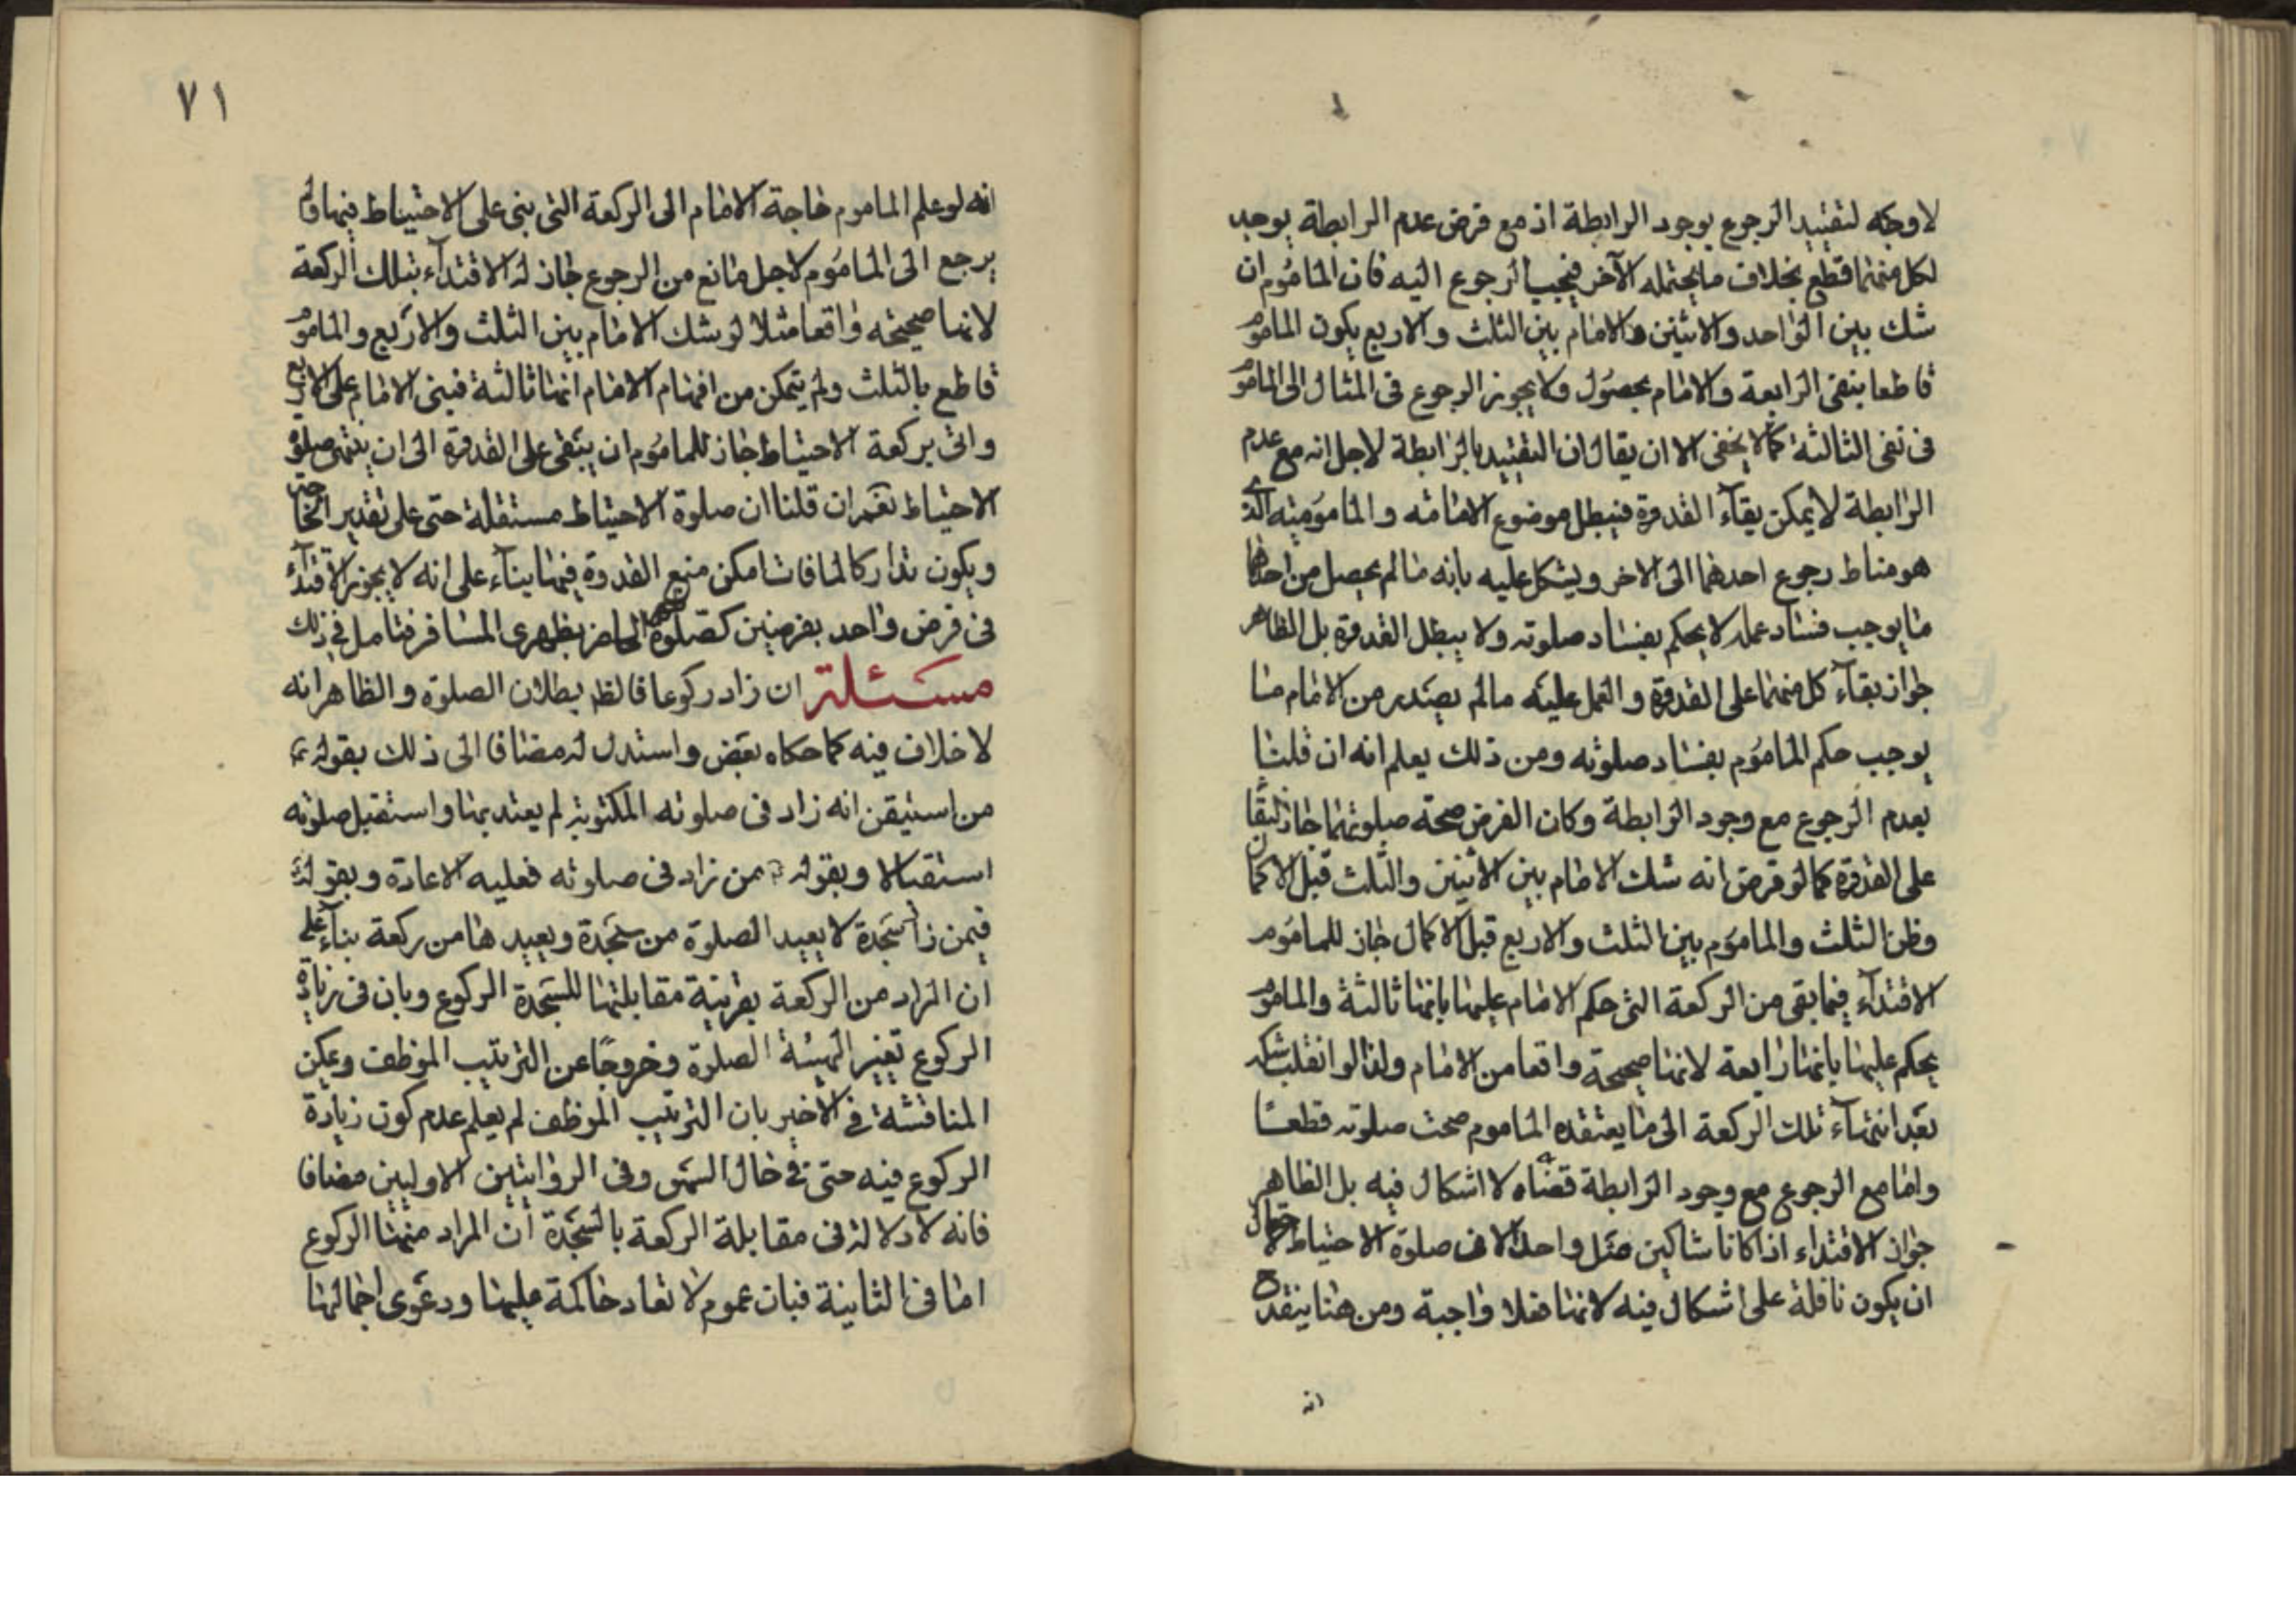 لا وجه لتقييد الرجوع بوجود الرابطة اذ مع فرض عدم الرابطة يوجد
لكل منهما قطع بخلاف ما يحتمله الآخر فيجب الرجوع اليه فان المأموم ان
شك بين الواحد والاثنين والامام بين الثلث والاربع يكون المأموم
قاطعا بنفى الرابعة والامام بحصول ولا يجوز الرجوع فى المثال الى المأموم
فى نفى الثالثة كما لا يخفى الا ان يقال ان التقييد بالرابطة لاجل انه مع عدم
الرابطة لا يمكن بقآء القدوة فيبطل موضوع الامامته والمامومیته الذى
هو مناط رجوع احدهما الى الاخر ويشكل عليه بانه ما لم يحصل من احدهما
ما يوجب فساد عمله لا يحكم بفساد صلوته ولا يبطل القدوة بل الظاهر
جواز بقاء كل منهما على القدوة والعمل عليه مالم يصدر من الامام ما
يوجب حكم المأموم بفساد صلوته ومن ذلك يعلم انه ان قلنا
بعدم الرجوع مع وجود الرابطة وكان الفرض صحة صلوتهما جاز البقا
على القدوة كما لو فرض انه شك الامام بين الاثنين والثلث قبل الاكمال
وظن الثلث والماموم بين الثلث والاربع قبل الاكمال جاز للمأموم
الاقتدآء فيما بقى من الركعة التى حكم الامام عليها بانها ثالثة والماموم
يحكم عليها بانها رابعة لانها صحيحة واقعا من الامام ولذا لو انقلب شكه
بعد انتهآء تلك الركعة الى ما يعتقده الماموم صحت صلوته قطعا
واما مع الرجوع مع وجود الرابطة لا اشكال فيه بل الظاهر
جواز الاقتداء اذا كانا شاكين مثل واحد الا فى صلوة الاحتياط لاحتمال
ان يكون نافلة على اشكال فيه لانها فعلا واجبة ومن هنا ينقدح
انه
٧١
انه لو علم الماموم حاجة الامام الى الركعة التى بنى على الاحتياط فيها ولم
يرجع الى المأموم لاجل مانع من الرجوع جاز له الاقتدآء بتلك الركعة
لانها صحيحه واقعا مثلا لو شك الامام بين الثلث والاربع والماموم
قاطع بالثلث ولم يتمكن من افهام الامام انها ثالثة فبنى الامام على الاربع
واتى بركعة الاحتياط جاز للمأموم ان يبقى على القدوة الى ان يتم صلوة
الاحتياط نعم ان قلنا ان صلوة الاحتياط مستقلة حتى على تقدير الحاجة
ويكون تداركا لما فات امكن منع القدوة فيها بنآء على انه لا يجوز الاقتدآء
فى فرض واحد بفرضين كصلوة الحاضر بظهرى المسافر فتامل فى ذلك
مسئلة ان زاد ركوعا فالظ بطلان الصلوة والظاهر انه
لا خلاف فيه كما حكاه بعض واستدل له مضافا الى ذلك بقوله ع
من استيقن انه زاد فى صلوته المكتوبة لم يعتد بها واستقبل صلوته
استقبالا وبقوله ع من زاد فى صلوته فعليه الاعادة وبقوله ع
فيمن زاد سجدة لا يعيد الصلوة من سجدة ويعيدها من ركعة بناء على
ان المراد من الركعة بقرينة مقابلتها للسجدة الركوع وبان فى زيادة
الركوع تغيير الهيئة الصلوة وخروجا عن الترتيب الموظف ويمكن
المناقشة فى الاخير بان الترتيب الموظف لم يعلم عدم كون زيادة
الركوع فيه حتى فى حال السهو وفى الروايتين الاوليين مضافا
فانه لا دلالة فى مقابلة الركعة بالسجدة ان المراد منها الركوع
اما فى الثانية فبان عموم لا تعاد حاكمة عليها ودعوى اجمالها